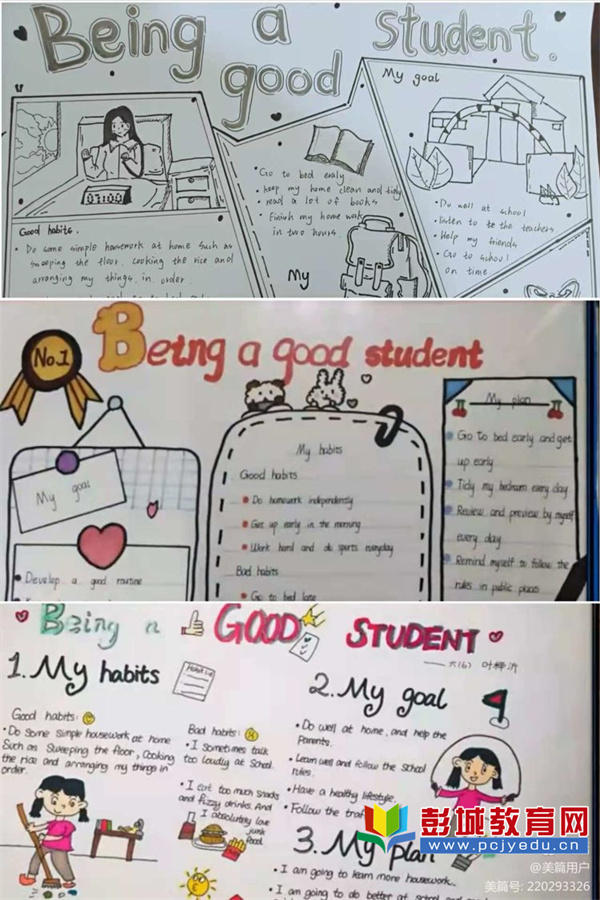 Being a
good student.
My goal
Good habits.
• Do some simple housework at home such as
sweeping the floor. Cooking the rice and
arranging my things in order.
• Go to bed early
• keep my home clean and tidy
• read a lot of books
• Finish my home work
in two hours.
My
• Do well at school
• listen to te the teachers
• Help my friends
• Go to school
on time
No.1
Being a good student
My goal
• Develop a good routine
My habits
Good habits
• Do homework independently
• Get up early in the morning
• Work hard and do sports everyday
Bad habits
• Go to bed late
My plan
Go to bed early and get
up early
Tidy my bedroom every day
Review and preview by myself
every day
Remind myself to follow the
rules in public places
Being a GOOD STUDENT
1. My habits
Good habits:
• Do some simple housework at home
Such as Sweeping the floor, Cooking
the rice and arranging my things in
order.
Bad habits:
• I sometimes talk
too loudly at School.
• I eat too much snacks
and fizzy drinks. And
I absolutely love
junk
food.
2. My goal
• Do well at home, and help the
Parents.
• Learn well and follow the School
rules.
• Have a healthy lifestyle.
• Follow the
3. My plan
• I am going to learn more housework.
• I am going to do better at school and
彭城教育网
www.pcjyedu.cn
@美篇用户
美篇号: 220293326